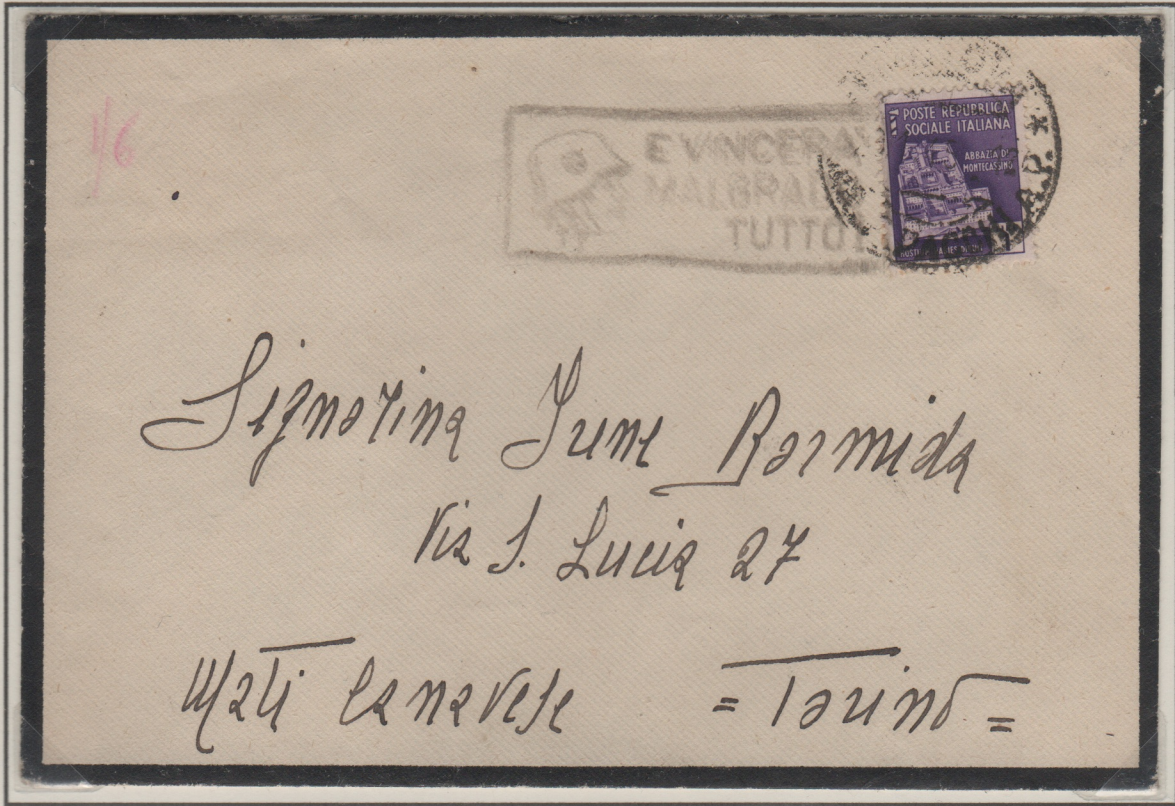 1/6
E VINCERA'
MALGRADO
TUTTO!
POSTE REPUBBLICA
SOCIALE ITALIANA
ABBAZIA DI
MONTECASSINO
A.P. *
Signorina Irene Bormida
Via S. Lucia 27
Mati Canavese = Torino =